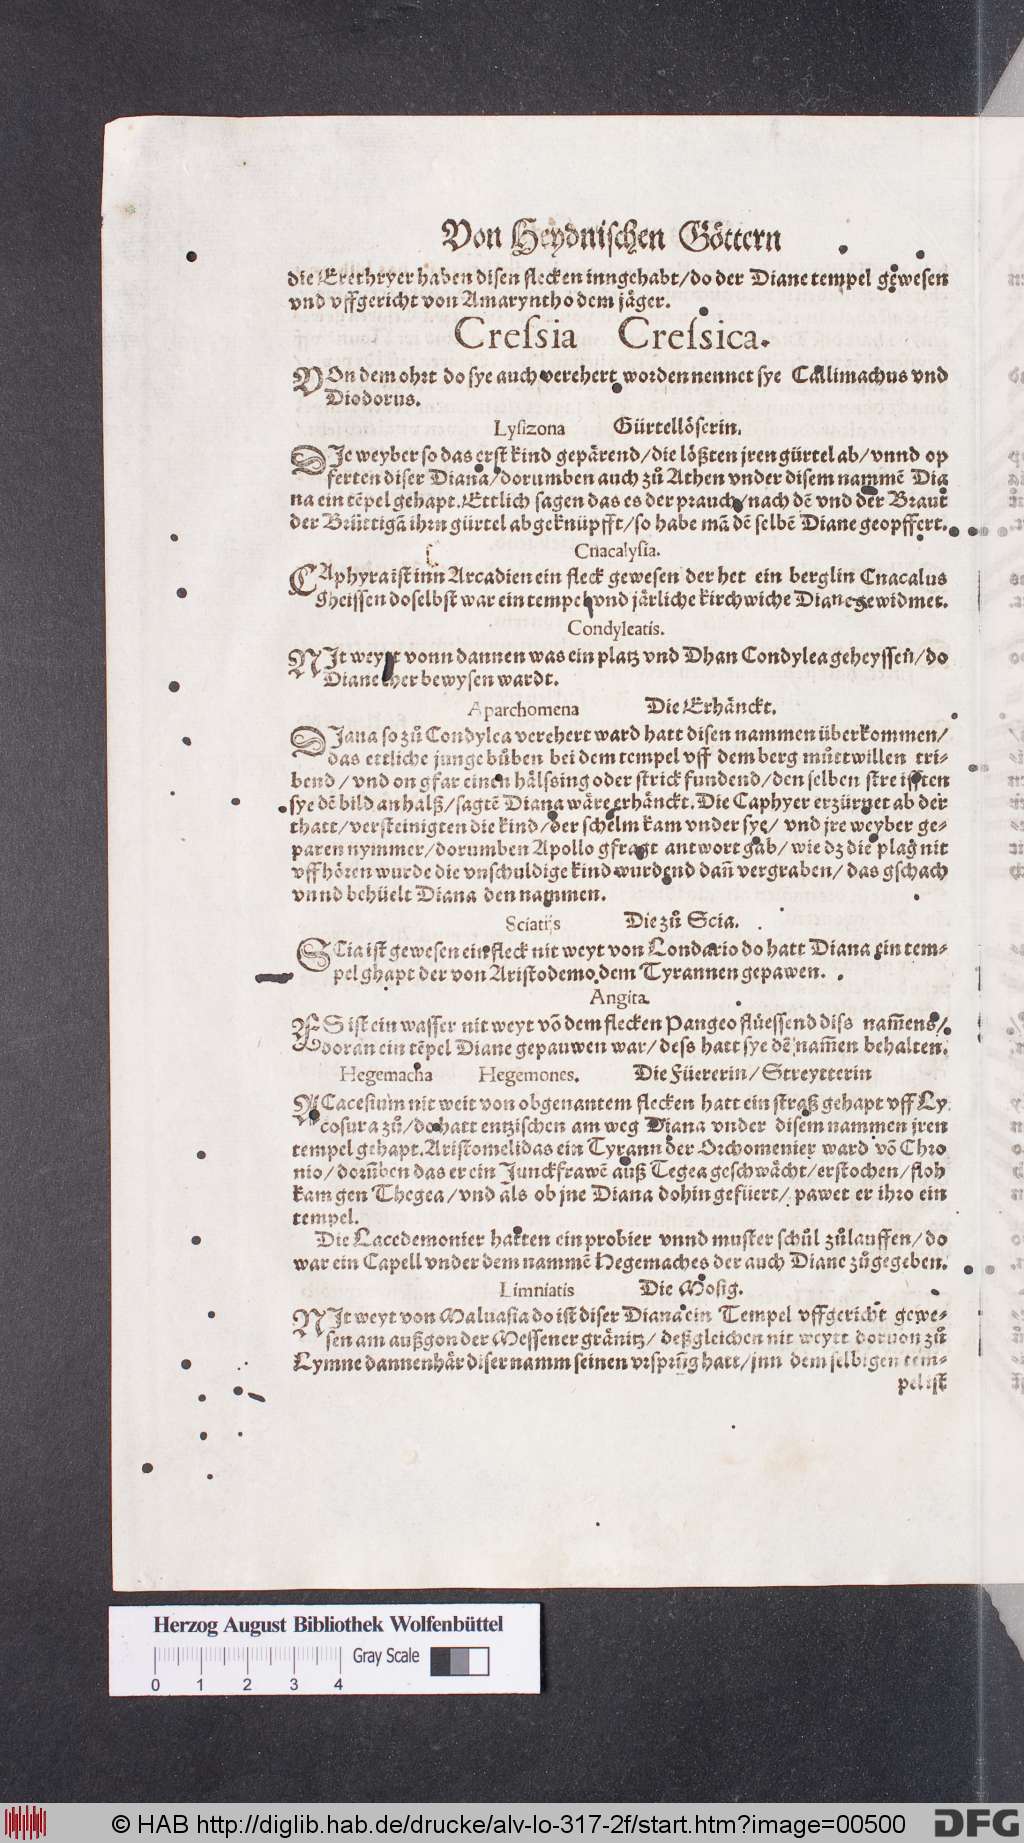 Von Heydnischen Göttern
die Erethryer haben disen flecken inngehabt/ do der Diane tempel gewesen
vnd vffgericht von Amaryntho dem jäger.
Cresſia Creſsica.
VOn dem ohrt do sye auch verehert worden nennet sye Callimachus vnd
Diodorus.
Lysizona Gürtellöserin.
DJe weyber so das erst kind gepärend/ die lößten jren gürtel ab/ vnnd op
ferten diser Diana/ dorumben auch zů Athen vnder disem nammẽ Dia
na ein tẽpel gehapt. Ettlich sagen das es der prauch/ nach dẽ vnd der Braut
der Brüttigã ihrn gürtel abgeknüpfft/ so habe mã dẽ selbẽ Diane geopffert.
Cnacalysia.
CAphyra ist inn Arcadien ein fleck gewesen der het ein berglin Cnacalus
gheissen doselbst war ein tempel vnd järliche kirchwiche Diane gewidmet.
Condyleatis.
NJt weyt vonn dannen was ein platz vnd Dhan Condylea geheyssen/ do
Diane eher bewysen wardt.
Aparchomena Die Erhänckt.
DJana so zů Condylea verehert ward hatt disen nammen überkommen/
das ettliche junge bůben bei dem tempel vff dem berg můttwillen tri-
bend/ vnd on gfar einen hälssing oder strick fundend/ den selben streifften
sye dẽ bild an halß/ sagtẽ Diana wäre erhänckt. Die Caphyer erzürnet ab der
thatt/ versteinigten die kind/ der schelm kam vnder sye/ vnd jre weyber ge-
paren nymmer/ dorumben Apollo gfragt antwort gab/ wie dz die plag nit
vffhören wurde die vnschuldige kind wurdend dañ vergraben/ das gschach
vnnd behüelt Diana den nammen.
Sciatijs Die zů Scia.
SCia ist gewesen ein fleck nit weyt von Londario do hatt Diana ein tem-
pel ghapt der von Aristodemo dem Tyrannen gepawen.
Angita
ES ist ein wasser nit weyt võ dem flecken Pangeo flüessend diss nam̃ens/
doran ein tẽpel Diane gepauwen war/ dess hatt sye dẽ nam̃en behalten.
Hegemacha Hegemones. Die Füererin/ Streytterin
ACacesium nit weit von obgenantem flecken hatt ein straß gehapt vff Ly
cosura zů/ do hatt entzischen am weg Diana vnder disem nammen jren
tempel gehapt. Aristomelidas ein Tyrann der Orchomenier ward võ Chro
nio/ dorum̃ben das er ein Junckfrawẽ auß Tegea geschwächt/ erstochen/ floh
kam gen Thegea/ vnd als ob jne Diana dohin gefüert/ pawet er ihro ein
tempel.
Die Lacedemonier hatten ein probier vnnd muster schůl zůlauffen/ do
war ein Capell vnder dem nammẽ Hegemaches der auch Diane zůgegeben.
Limniatis Die Mosig.
NJt weyt von Maluasia do ist diser Diana ein Tempel vffgericht gewe-
sen am außgon der Messener gränitz/ deßgleichen nit weytt doruon zů
Lymne dannenhär diser namm seinen vrsprũg hatt/ jnn dem selbigen tem-
pel ist
Herzog August Bibliothek Wolfenbüttel
Gray Scale
0 1 2 3 4
© HAB http://diglib.hab.de/drucke/alv-lo-317-2f/start.htm?image=00500
DFG